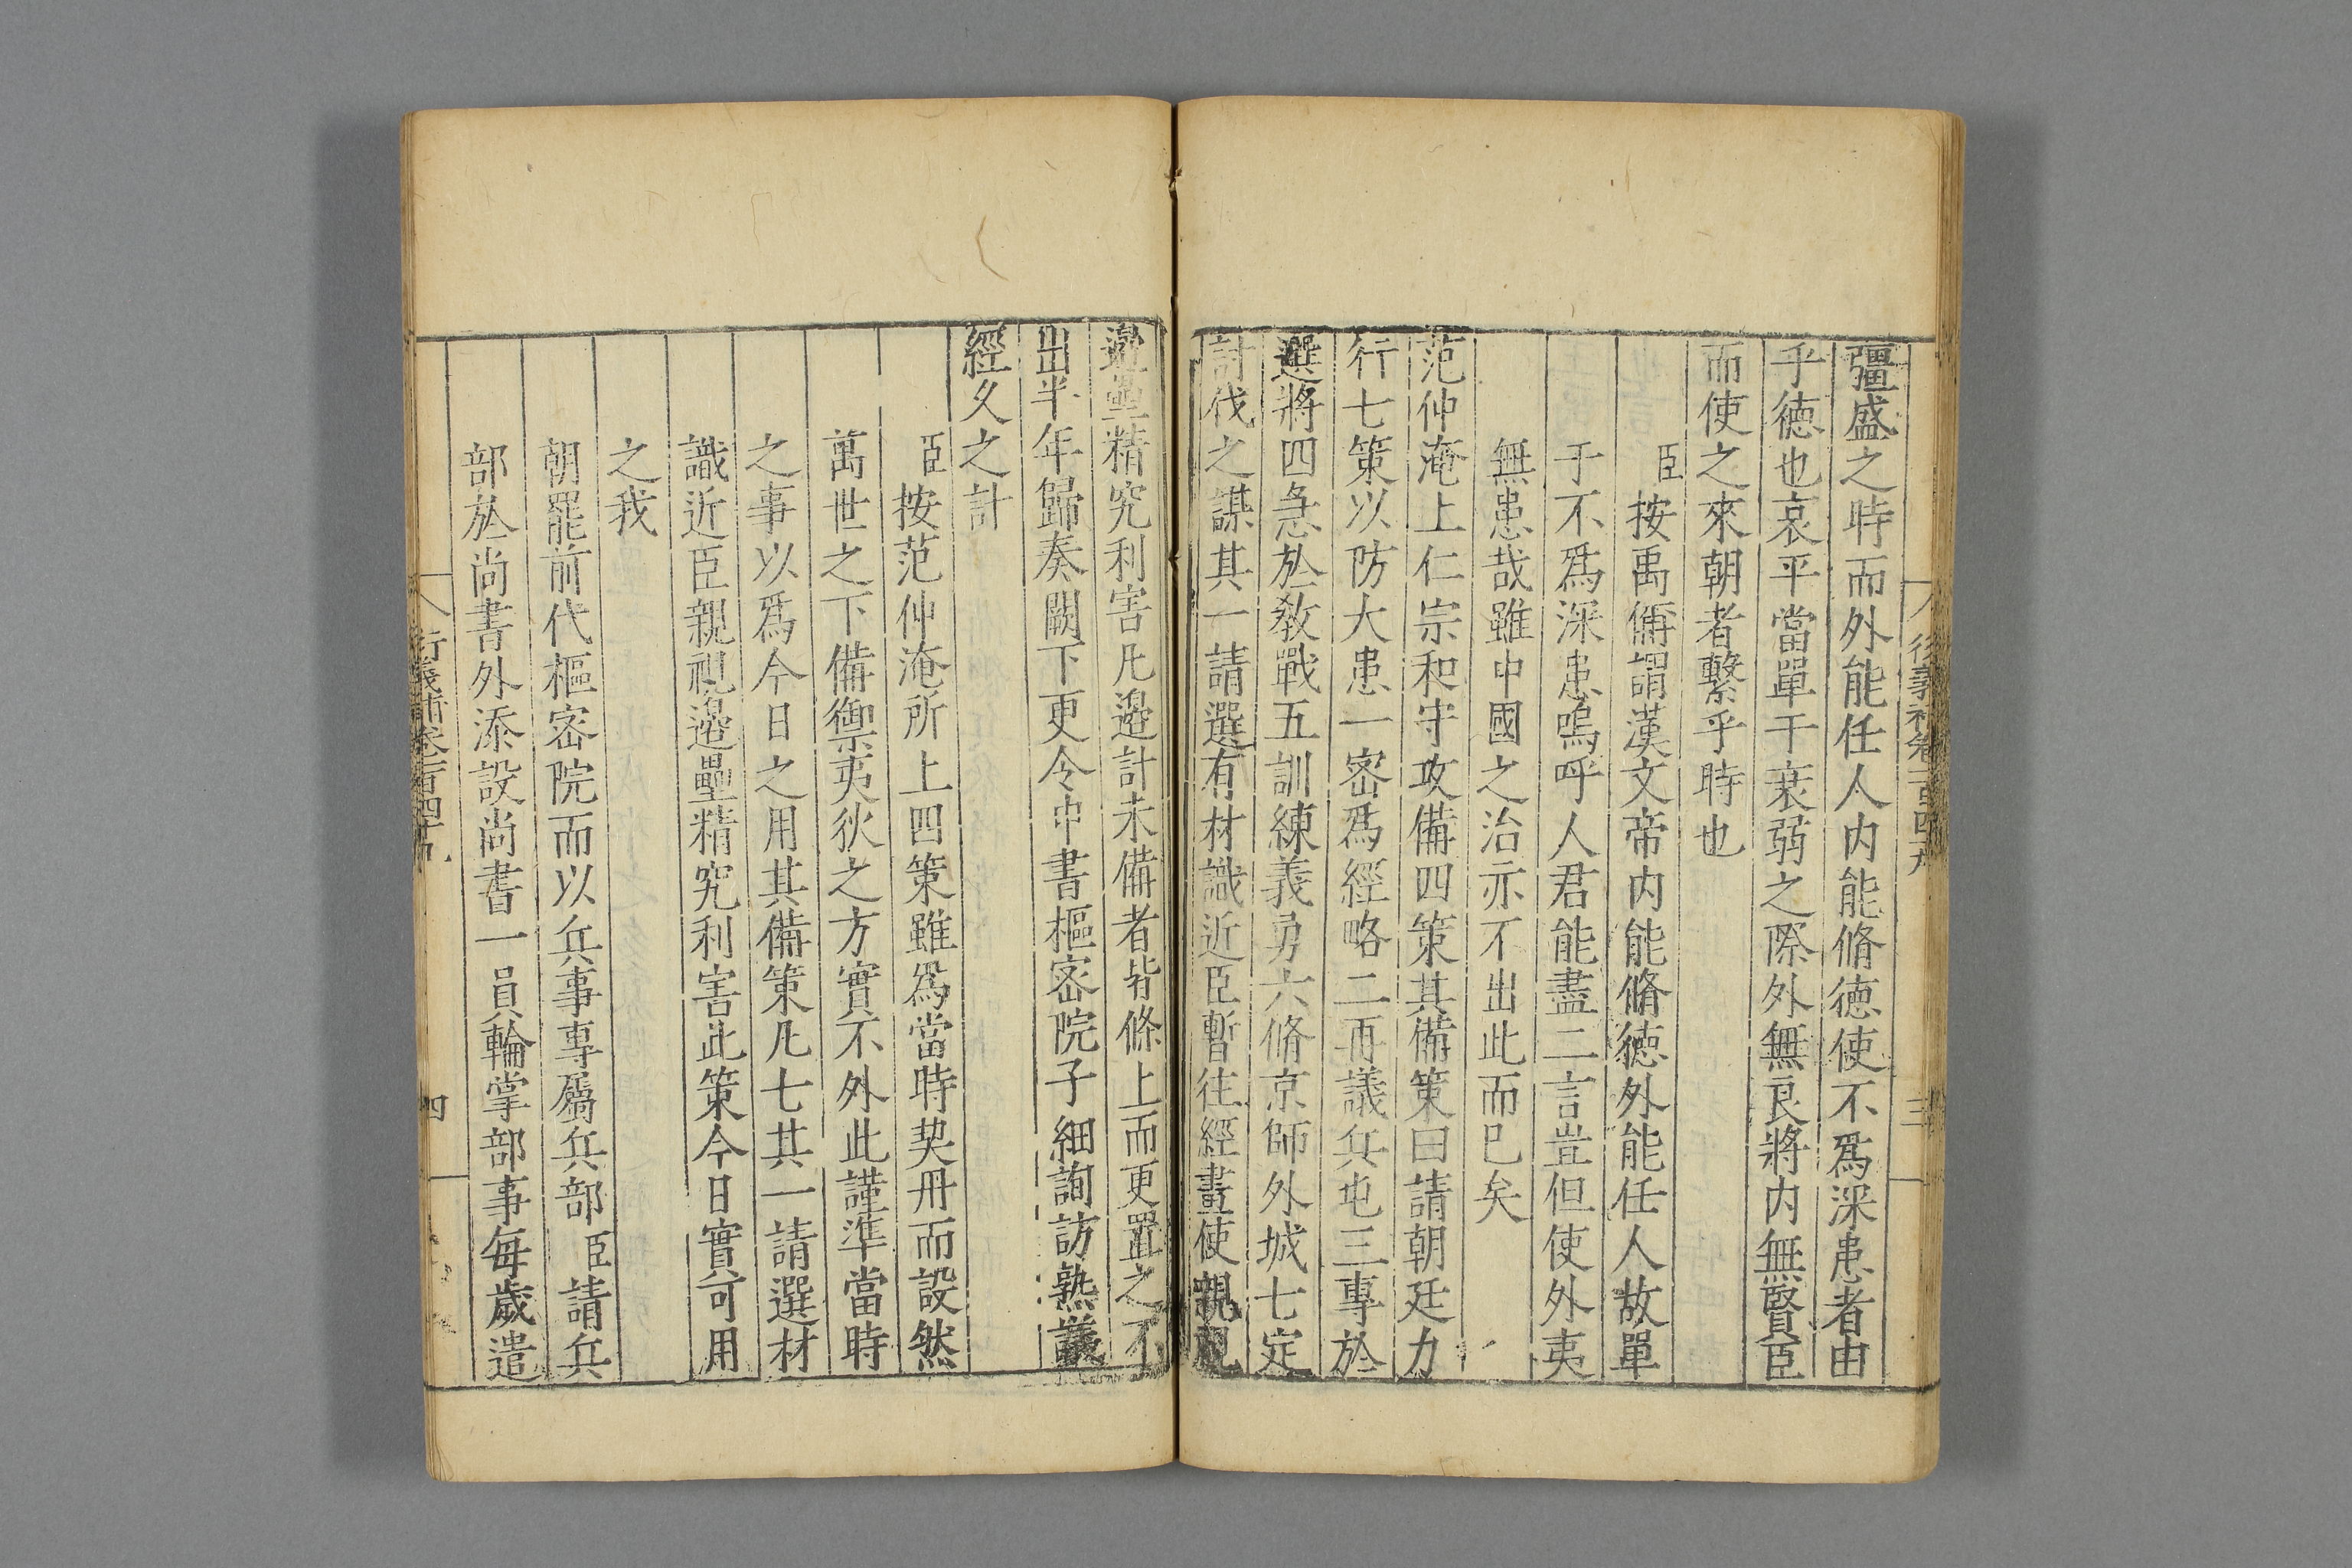 彊盛之時而外能任人内能脩德使不爲深患者由
乎德也哀平當單于衰弱之際外無良將内無賢臣
而使之來朝者繫乎時也
臣按禹偁謂漢文帝内能脩德外能任人故單
于不爲深患嗚呼人君能盡二言豈但使外夷
無患哉雖中國之治亦不出此而已矣
范仲淹上仁宗和守攻備四策其備策曰請朝廷力
行七策以防大患一宻爲經略二再議兵屯三專於
選將四急於教戰五訓練義勇六脩京師外城七定
討伐之謀其一請選有材識近臣暫往經畫使親視
邊壘精究利害凡邊計未備者皆條上而更置之不
出半年歸奏闕下更令中書樞宻院子細詢訪熟議
經久之計
臣按范仲淹所上四策雖爲當時契丹而設然
萬世之下備禦夷狄之方實不外此謹準當時
之事以爲今日之用其備策凡七其一請選材
識近臣親視邊壘精究利害此策今日實可用
之我
朝罷前代樞宻院而以兵事專屬兵部臣請兵
部於尚書外添設尚書一員輪掌部事每歲遣
衍義補卷一百四十九
四
三